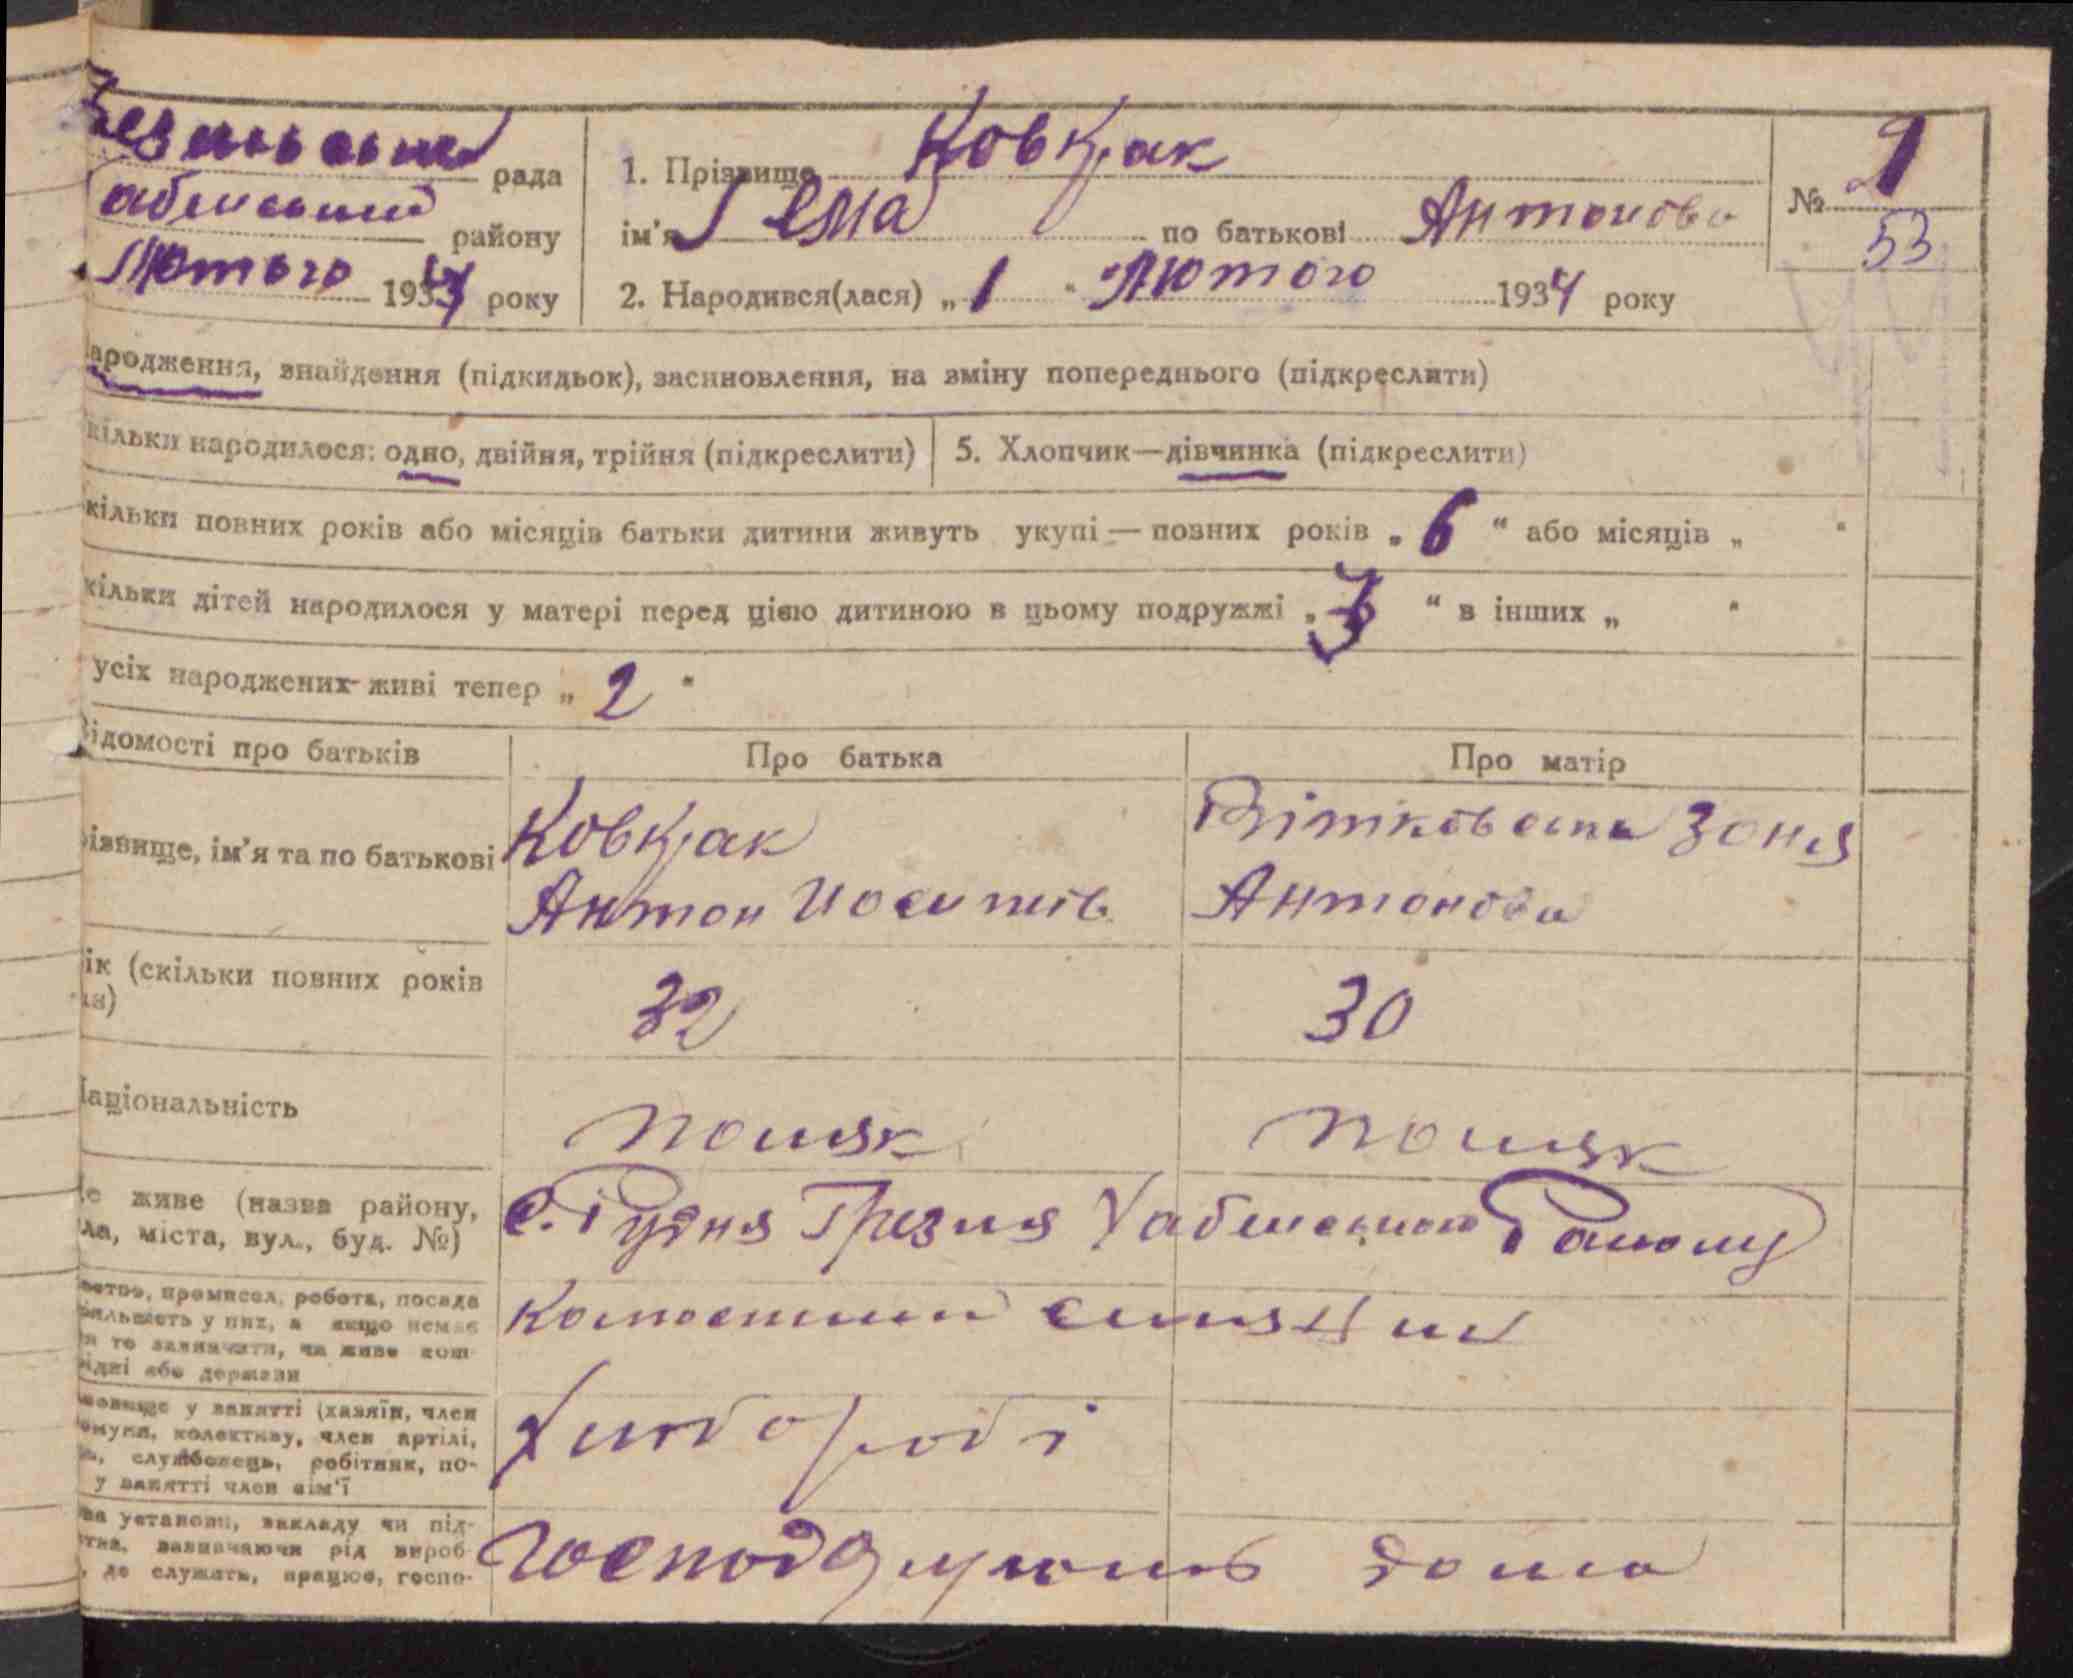 рада
1. Прізвище Ковкрак
№ 1
району
ім'я Гема по батькові Антонова
53
Лютого 1934 року
2. Народився(лася) „ 1 “ Лютого 1934 року
ародження, знайдення (підкидьок), засиновлення, на зміну попереднього (підкреслити)
кільки народилося: одно, двійня, трійня (підкреслити)
5. Хлопчик—дівчинка (підкреслити)
кільки повних років або місяців батьки дитини живуть укупі — повних років „ 6 “ або місяців „ “
кільки дітей народилося у матері перед цією дитиною в цьому подружжі „ 3 “ в інших „ “
усіх народжених живі тепер „ 2 “
ідомості про батьків
Про батька
Про матір
різвище, ім'я та по батькові
Ковкрак
Антон Йосипів
Вітковська Зоня
Антонова
ік (скільки повних років
32
30
аціональність
поляк
поляк
е живе (назва району,
ла, міста, вул., буд. №)
с. Рудня Грезля Хабенського Району
промисел, робота, посада
у них, а якщо немає
то зазначити, чи живе кош
або держави
Колгоспний
у занятті (хазяїн, член
колективу, член артілі,
службовець, робітник, по-
у занятті член сім'ї
Хлібороби
ва установи, закладу чи під-
зазначаючи рід вироб-
де служить, працює, госпо-
Господарюють дома